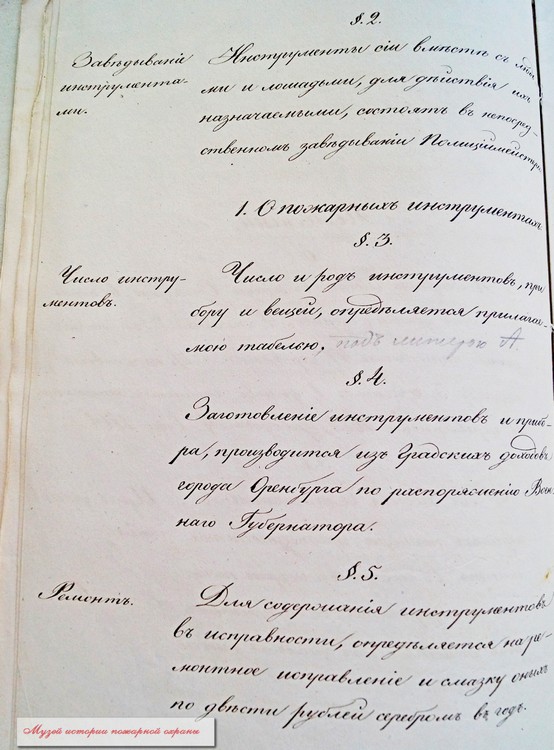 §. 2.
Завѣдываніе
инструмента-
ми.
Инструменты сіи вмѣстѣ съ людь-
ми и лошадьми, для дѣйствія ихъ
назначаемыми, состоятъ въ непосред-
ственномъ завѣдываніи Полиціймейстера
1. О пожарныхъ инструментахъ
§. 3.
Число инстру-
ментовъ.
Число и родъ инструментовъ, при
бору и вещей, опредѣляется прилагае-
мою табелью, подъ литерою А.
§. 4.
Заготовленіе инструментовъ и прибо-
ра, производится изъ Градскихъ доходовъ
города Оренбурга по распоряженію Воен
наго Губернатора.
§. 5.
Ремонтъ.
Для содержанія инструментовъ
въ исправности, опредѣляется на ре-
монтное исправленіе и смазку оныхъ
по двѣсти рублей серебромъ въ годъ.
Музей истории пожарной охраны